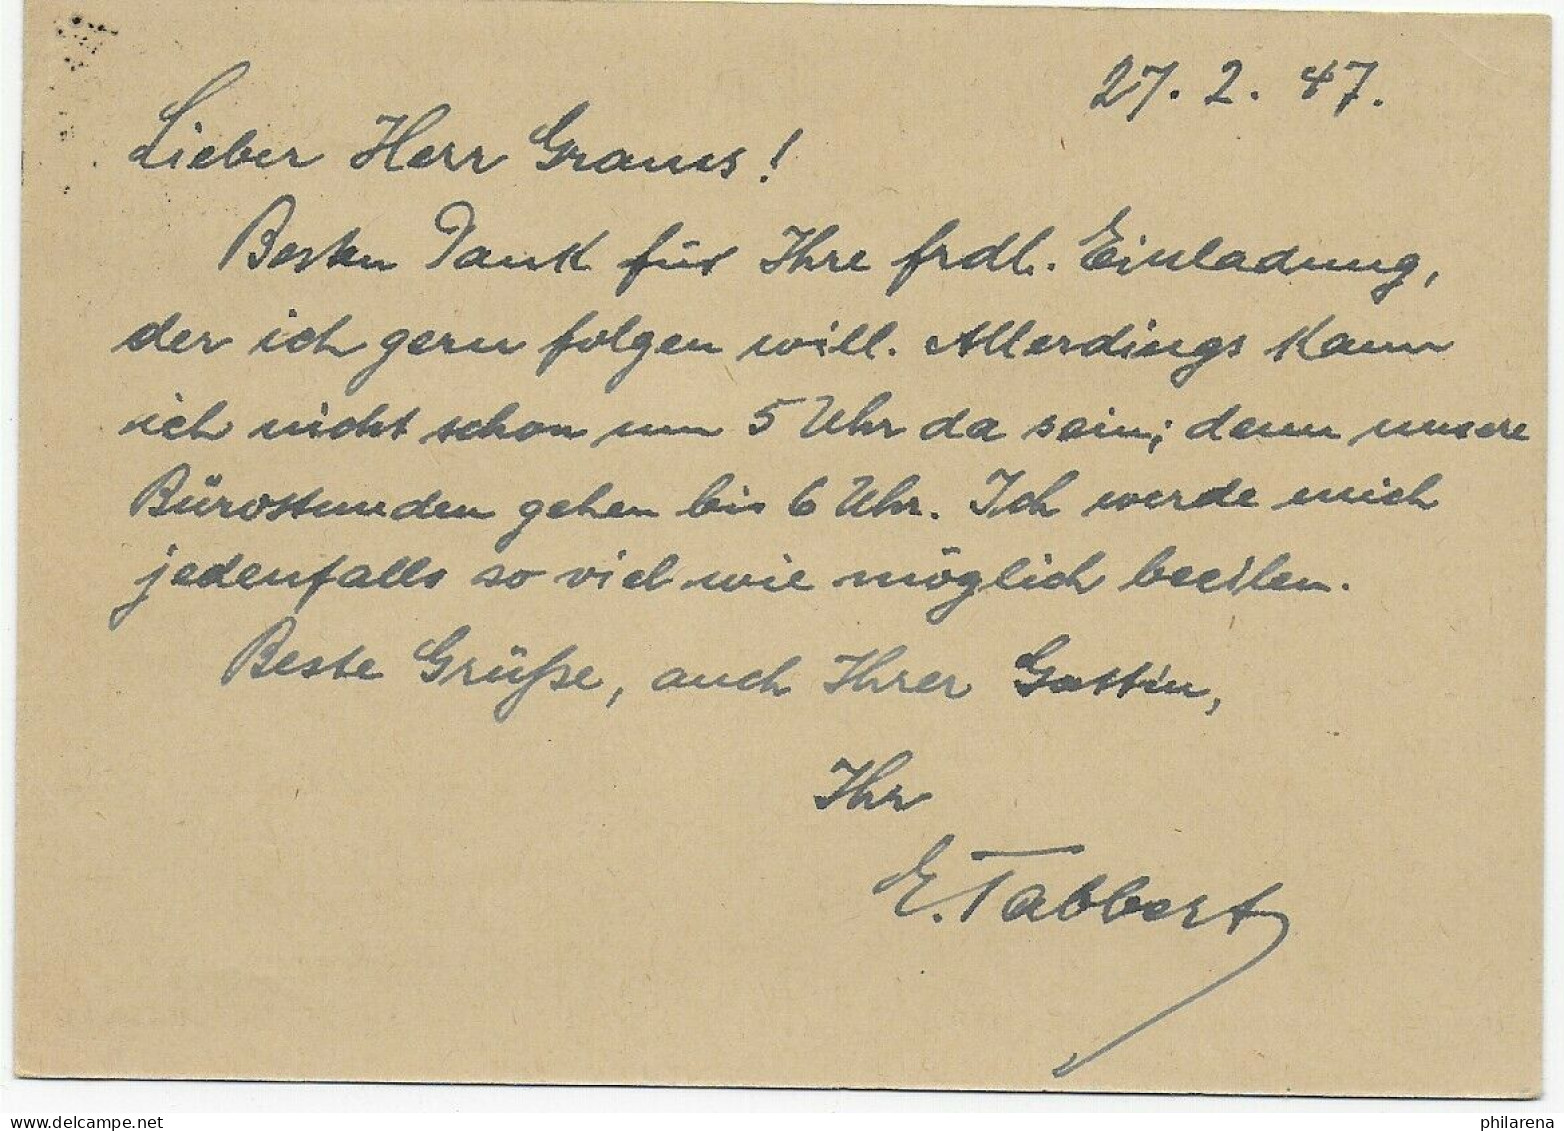 27. 2. 47.
Lieber Herr Grams!
Besten Dank für Ihre frdl. Einladung,
der ich gern folgen will. Allerdings kann
ich nicht schon um 5 Uhr da sein; denn unsere
Bürostunden gehen bis 6 Uhr. Ich werde mich
jedenfalls so viel wie möglich beeilen.
Beste Grüße, auch Ihrer Gattin,
Ihr
E. Tabbert
www.delcampe.net
philarena